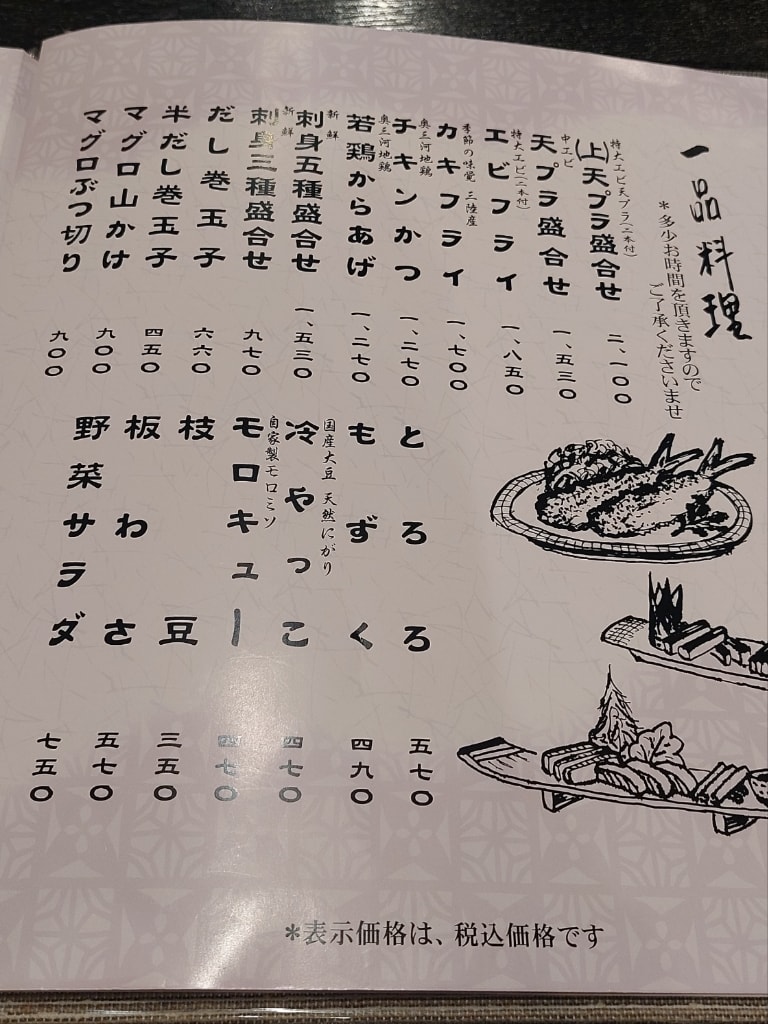 一品料理
＊多少お時間を頂きますので
ご了承くださいませ
特大エビ天プラ(二本付)
(上)天プラ盛合せ
二、一〇〇
中エビ
天プラ盛合せ
一、五三〇
特大エビ(二本付)
エビフライ
一、八五〇
季節の味覚 三陸産
カキフライ
一、七〇〇
奥三河地鶏
チキンかつ
一、二七〇
奥三河地鶏
若鶏からあげ
一、二七〇
新鮮
刺身五種盛合せ
一、五三〇
新鮮
刺身三種盛合せ
九七〇
だし巻玉子
六六〇
半だし巻玉子
四五〇
マグロ山かけ
九〇〇
マグロぶつ切り
九〇〇
とろろ
五七〇
もずく
四九〇
国産大豆 天然にがり
冷やっこ
四七〇
自家製モロミソ
モロキュー
四七〇
枝豆
三五〇
板わさ
五七〇
野菜サラダ
七五〇
＊表示価格は、税込価格です